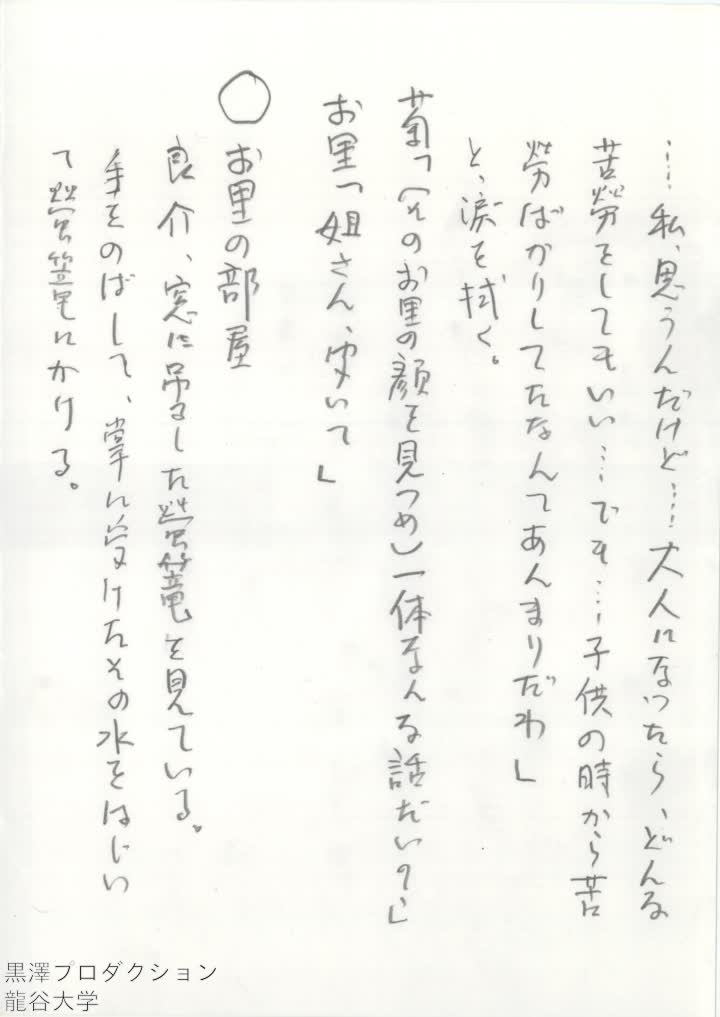 ……私、思うんだけど……大人になったら、どんな
苦労をしてもいい……でも……子供の時から苦
労ばかりしてたなんてあんまりだわ」
と、涙を拭く。
菊「(そのお里の顔を見つめ)一体なんな話だい?」
お里「姐さん、聞いて」
○お里の部屋
良介、窓に吊るした螢籠を見ている。
手をのばして、掌に受けたその水をはじい
て螢籠にかける。
黒澤プロダクション
龍谷大学